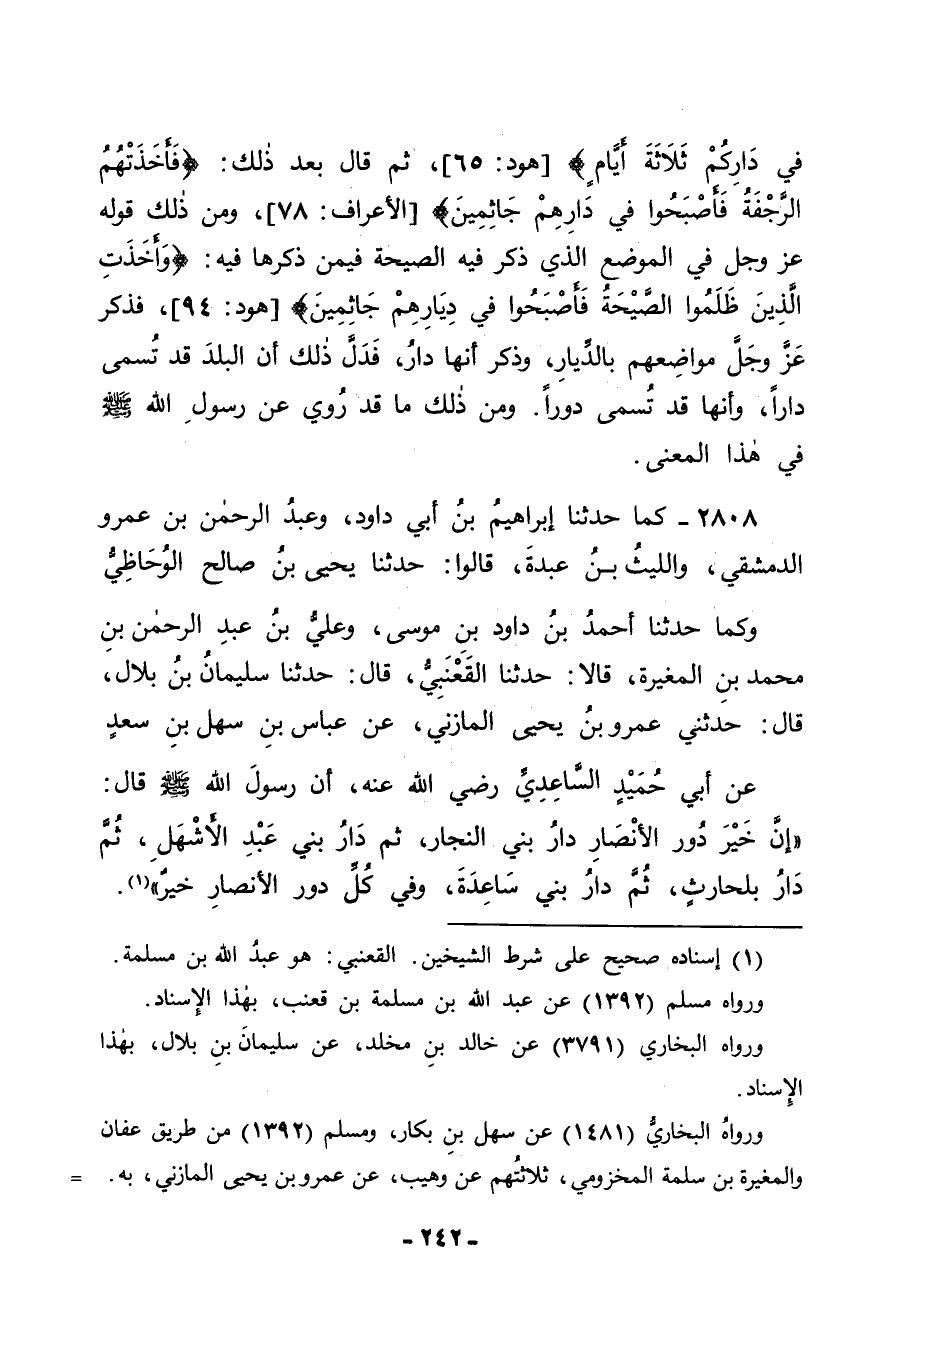 في دَارِكُمْ ثَلَاثَةَ أَيَّامٍ﴾ [هود: ٦٥]، ثم قال بعد ذٰلك: ﴿فَأَخَذَتْهُمُ
الرَّجْفَةُ فَأَصْبَحُوا في دَارِهِمْ جَاثِمِينَ﴾ [الأعراف: ٧٨]، ومن ذٰلك قوله
عز وجل في الموضع الذي ذكر فيه الصيحة فيمن ذكرها فيه: ﴿وَأَخَذَتِ
الَّذِينَ ظَلَمُوا الصَّيْحَةُ فَأَصْبَحُوا في دِيَارِهِمْ جَاثِمِينَ﴾ [هود: ٩٤]، فذكر
عَزَّ وجَلَّ مواضِعهم بالدِّيارِ، وذكر أنها دارُ، فَدَلَّ ذٰلك أن البلدَ قد تُسمى
داراً، وأنها قد تُسمى دوراً. ومن ذٰلك ما قد رُوي عن رسولِ الله ﷺ
في هٰذا المعنى.
٢٨٠٨ ـ كما حدثنا إبراهيمُ بنُ أبي داود، وعبدُ الرحمٰن بن عمرو
الدمشقي، والليثُ بـنُ عبدةَ، قالوا: حدثنا يحيى بنُ صالح الوُحَاظِيُّ
وكما حدثنا أحمدُ بنُ داود بنِ موسى، وعليُّ بنُ عبدِ الرحمٰن بنِ
محمد بنِ المغيرة، قالا: حدثنا القَعْنَبِيُّ، قال: حدثنا سليمانُ بنُ بلال،
قال: حدثني عمرو بنُ يحيى المازني، عن عباس بنِ سهل بنِ سعدٍ
عن أبي حُمَيْدٍ السَّاعِدِيِّ رضي الله عنه، أن رسولَ الله ﷺ قال:
«إنَّ خَيْرَ دُور الأنْصَارِ دارُ بني النجار، ثم دَارُ بني عَبْدِ الأَشْهَلِ، ثُمَّ
دَارُ بلحارثٍ، ثُمَّ دارُ بني سَاعِدَةَ، وفي كُلِّ دور الأنصارِ خيرٌ»(١).
(١) إسناده صحيح على شرط الشيخين. القعنبي: هو عبدُ الله بن مسلمة.
ورواه مسلم (١٣٩٢) عن عبد الله بن مسلمة بن قعنب، بهٰذا الإِسناد.
ورواه البخاري (٣٧٩١) عن خالد بنِ مخلد، عن سليمانَ بنِ بلال، بهٰذا
الإِسناد.
ورواهُ البخاريُّ (١٤٨١) عن سهل بنِ بكار، ومسلم (١٣٩٢) من طريق عفان
والمغيرة بن سلمة المخزومي، ثلاثتُهم عن وهيب، عن عمرو بن يحيى المازني، به. =
ـ ٢٤٢ ـ